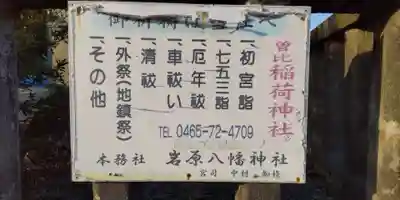 御祈祷は当社へ
曽比稲荷神社
一、初宮詣
一、七五三詣
一、厄年祓
一、車祓い
一、清祓
一、外祭(地鎮祭)
一、その他
TEL 0465-72-4709
本務社 岩原八幡神社
宮司 中村